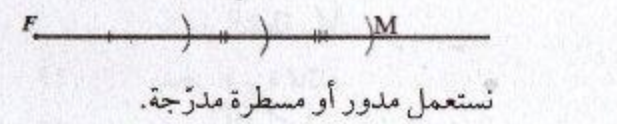 F M
نستعمل مدور أو مسطرة مدرّجة.